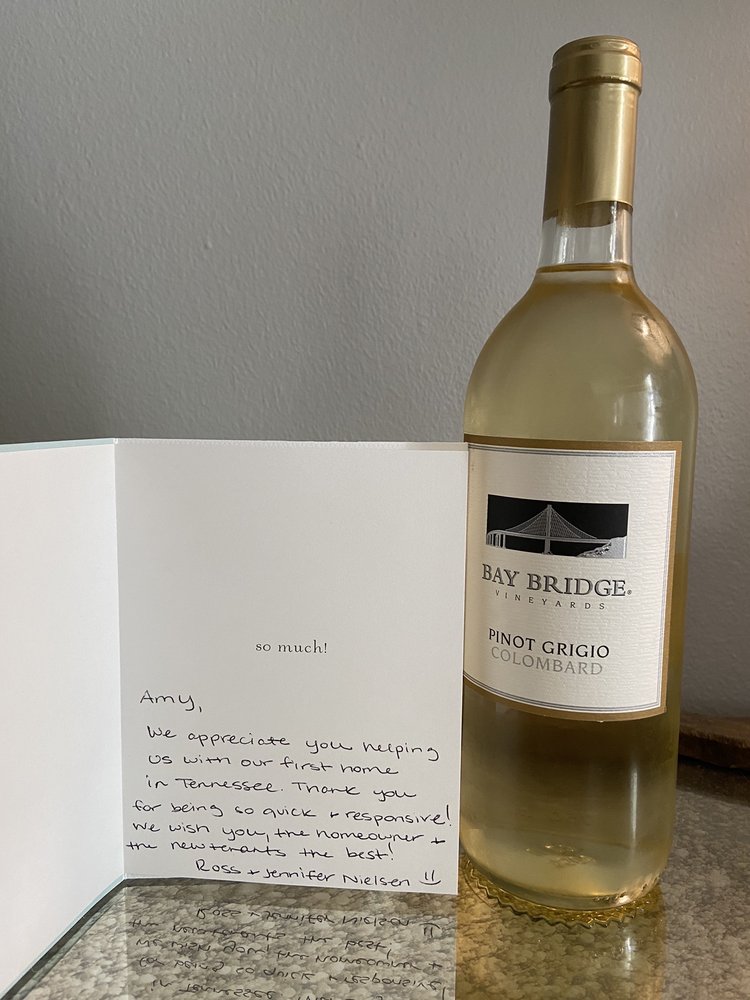 so much!
Amy,
We appreciate you helping
us with our first home
in Tennessee. Thank you
for being so quick + responsive!
We wish you, the homeowner +
the new tenants the best!
Ross + Jennifer Nielsen =)
BAY BRIDGE®
VINEYARDS
PINOT GRIGIO
COLOMBARD